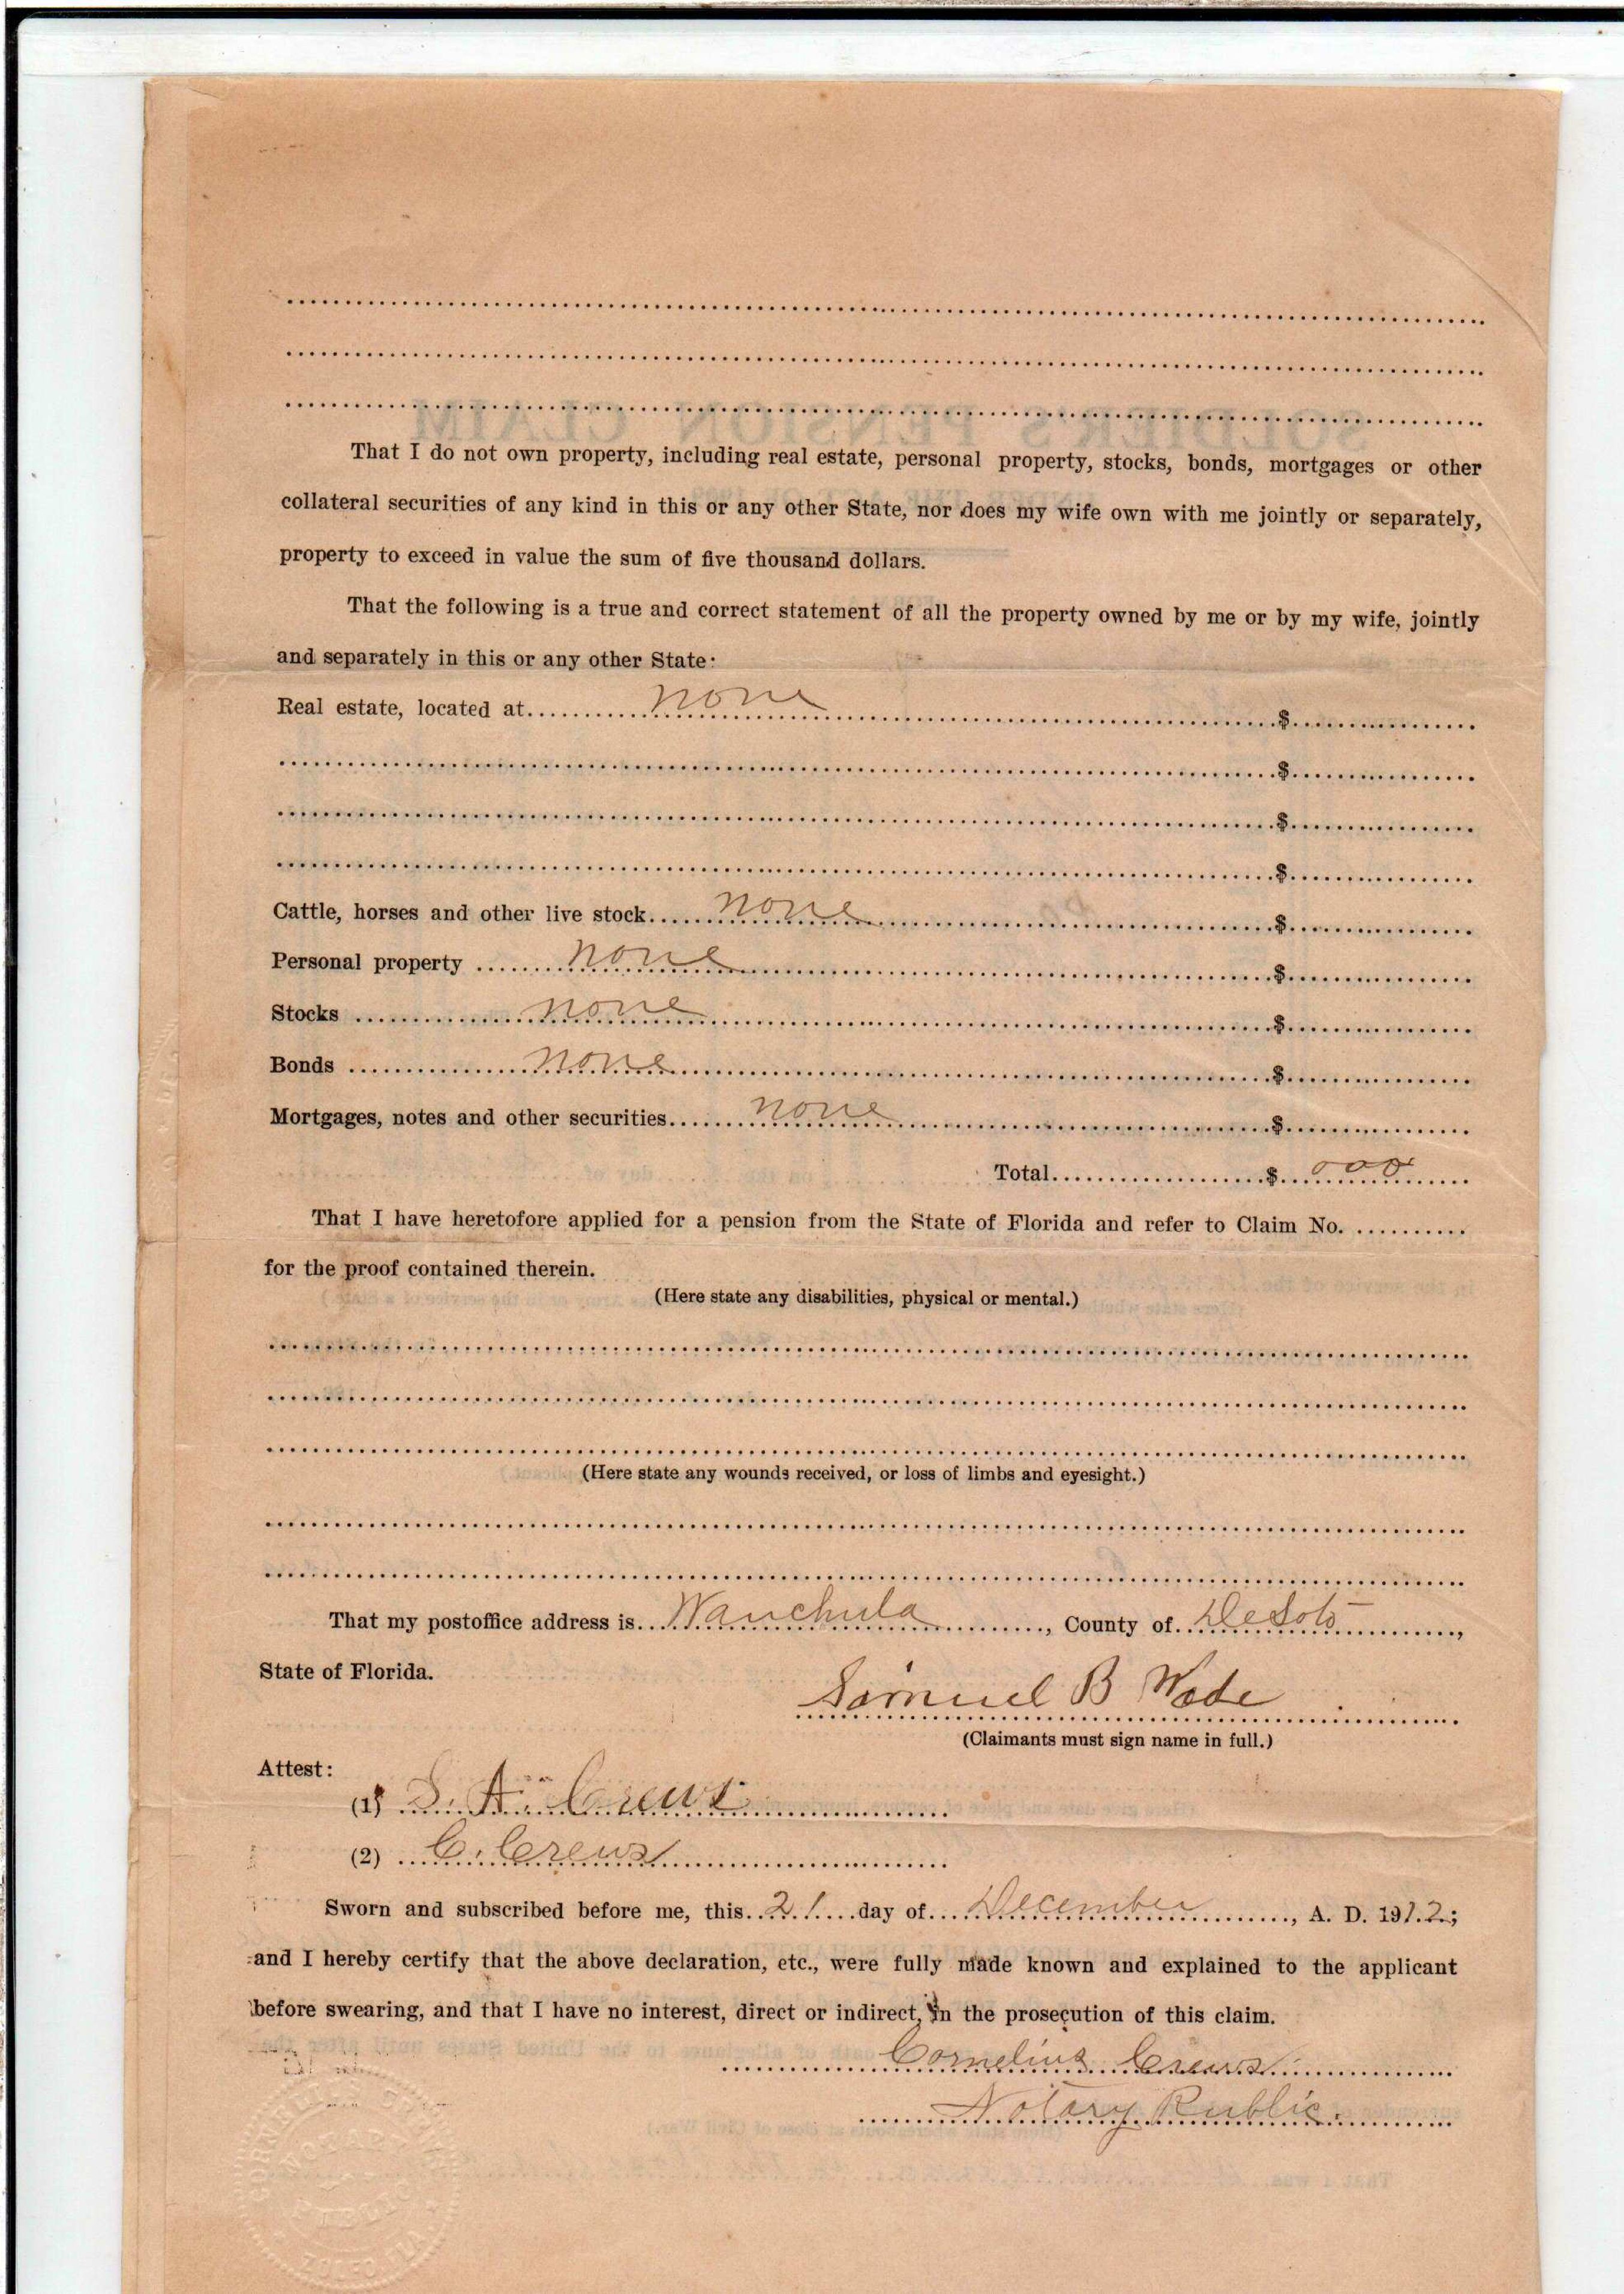 That I do not own property, including real estate, personal property, stocks, bonds, mortgages or other
collateral securities of any kind in this or any other State, nor does my wife own with me jointly or separately,
property to exceed in value the sum of five thousand dollars.
That the following is a true and correct statement of all the property owned by me or by my wife, jointly
and separately in this or any other State:
Real estate, located at none $
$
$
$
Cattle, horses and other live stock none $
Personal property none $
Stocks none $
Bonds none $
Mortgages, notes and other securities none $
Total $ 000
That I have heretofore applied for a pension from the State of Florida and refer to Claim No.
for the proof contained therein.
(Here state any disabilities, physical or mental.)
(Here state any wounds received, or loss of limbs and eyesight.)
That my postoffice address is Wauchula, County of DeSoto,
State of Florida.
Samuel B Wade
(Claimants must sign name in full.)
Attest:
(1) S. A. Crews
(2) C. Crews
Sworn and subscribed before me, this 21 day of December, A. D. 1912;
and I hereby certify that the above declaration, etc., were fully made known and explained to the applicant
before swearing, and that I have no interest, direct or indirect, in the prosecution of this claim.
Cornelius Crews
Notary Public.